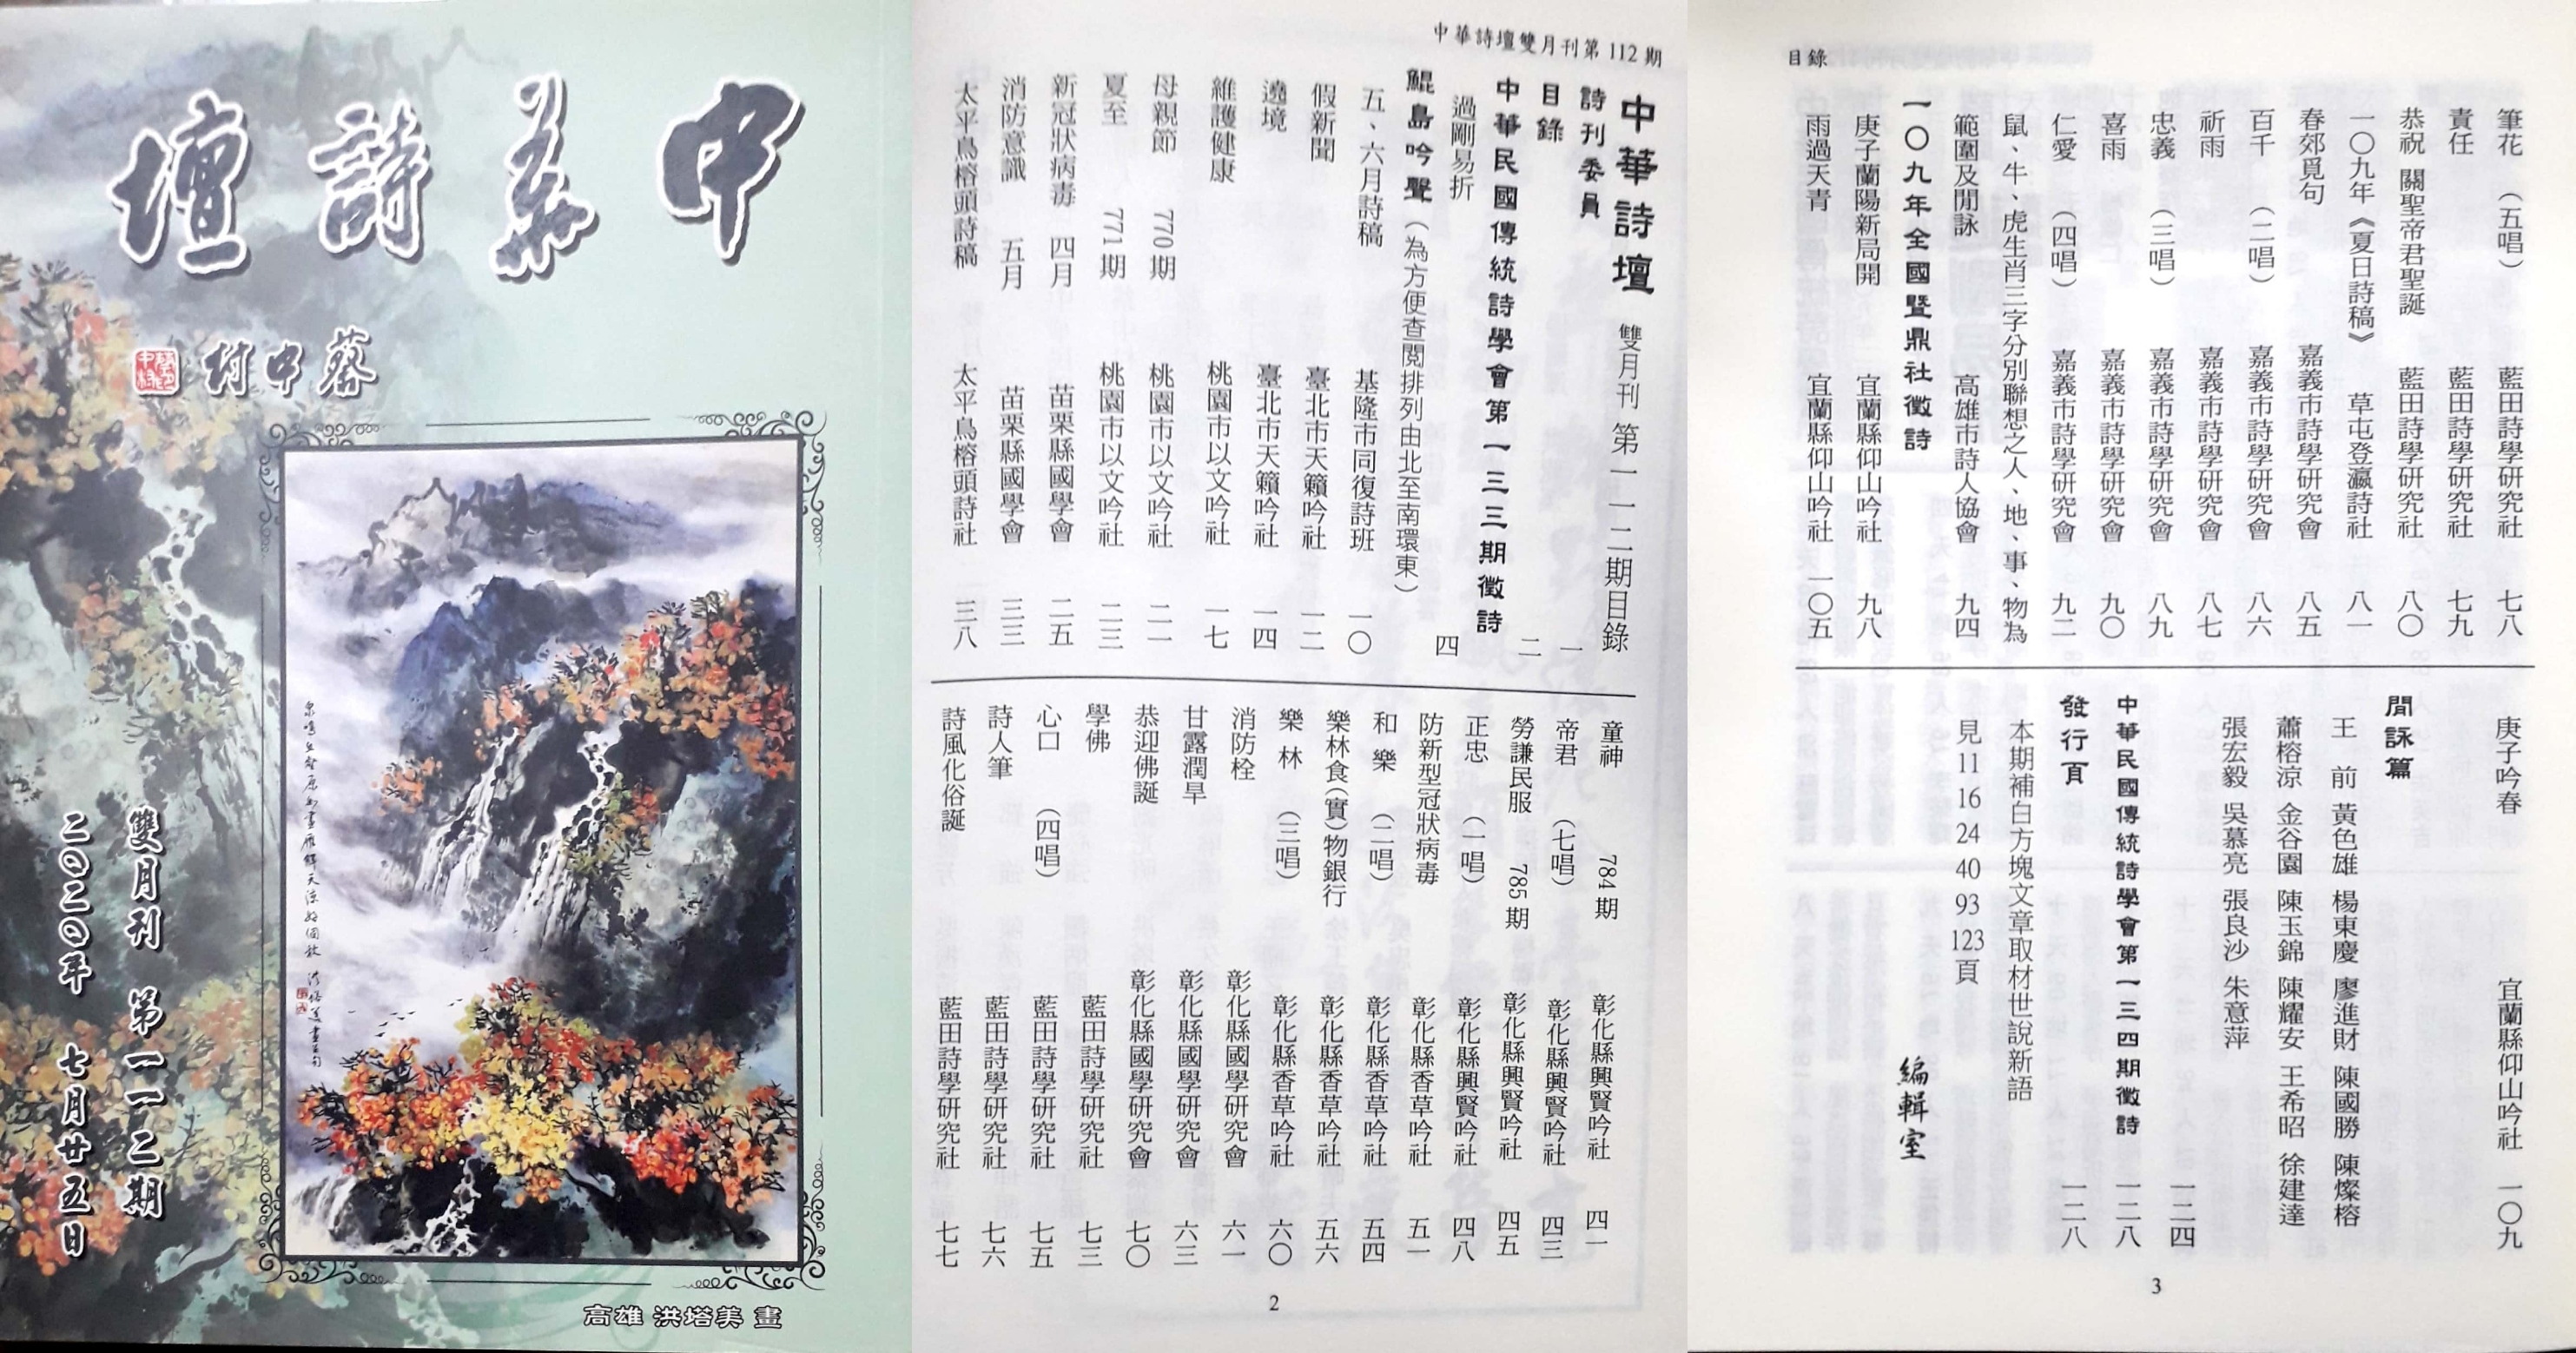 中華詩壇
蔡中村
雙月刊 第一一二期
二〇二〇年 七月廿五日
高雄 洪塔美 畫
中華詩壇雙月刊第112期
中華詩壇 雙月刊 第一一二期目錄
詩刊委員 一
目錄 二
中華民國傳統詩學會第一三三期徵詩
過剛易折 四
鯤島吟聲(為方便查閱排列由北至南環東)
五、六月詩稿 基隆市同復詩班 一〇
假新聞 臺北市天籟吟社 一二
遶境 臺北市天籟吟社 一四
維護健康 桃園市以文吟社 一七
母親節 770期 桃園市以文吟社 二一
夏至 771期 桃園市以文吟社 二三
新冠狀病毒 四月 苗栗縣國學會 二五
消防意識 五月 苗栗縣國學會 三三
太平鳥榕頭詩稿 太平鳥榕頭詩社 三八
童神 784期 彰化縣興賢吟社 四一
帝君 (七唱) 彰化縣興賢吟社 四三
勞謙民服 785期 彰化縣興賢吟社 四五
正忠 (一唱) 彰化縣興賢吟社 四八
防新型冠狀病毒 彰化縣香草吟社 五一
和樂 (二唱) 彰化縣香草吟社 五四
樂林食(實)物銀行 彰化縣香草吟社 五六
樂林 (三唱) 彰化縣香草吟社 六〇
消防栓 彰化縣國學研究會 六一
甘露潤旱 彰化縣國學研究會 六三
恭迎佛誕 彰化縣國學研究會 七〇
學佛 藍田詩學研究社 七三
心口 (四唱) 藍田詩學研究社 七五
詩人筆 藍田詩學研究社 七六
詩風化俗誕 藍田詩學研究社 七七
2
目錄
筆花 (五唱) 藍田詩學研究社 七八
責任 藍田詩學研究社 七九
恭祝 關聖帝君聖誕 藍田詩學研究社 八〇
一〇九年《夏日詩稿》 草屯登瀛詩社 八一
春郊覓句 嘉義市詩學研究會 八五
百千 (二唱) 嘉義市詩學研究會 八六
祈雨 嘉義市詩學研究會 八七
忠義 (三唱) 嘉義市詩學研究會 八九
喜雨 嘉義市詩學研究會 九〇
仁愛 (四唱) 嘉義市詩學研究會 九二
鼠、牛、虎生肖三字分別聯想之人、地、事、物為
範圍及閒詠 高雄市詩人協會 九四
一〇九年全國暨鼎社徵詩
庚子蘭陽新局開 宜蘭縣仰山吟社 九八
雨過天青 宜蘭縣仰山吟社 一〇五
庚子吟春 宜蘭縣仰山吟社 一〇九
閒詠篇
王 前 黃色雄 楊東慶 廖進財 陳國勝 陳燦榕
蕭榕涼 金谷園 陳玉錦 陳耀安 王希昭 徐建達
張宏毅 吳慕亮 張良沙 朱意萍
一二四
中華民國傳統詩學會第一三四期徵詩 一二八
發行頁 一二八
本期補白方塊文章取材世說新語
見11 16 24 40 93 123頁
編輯室
3